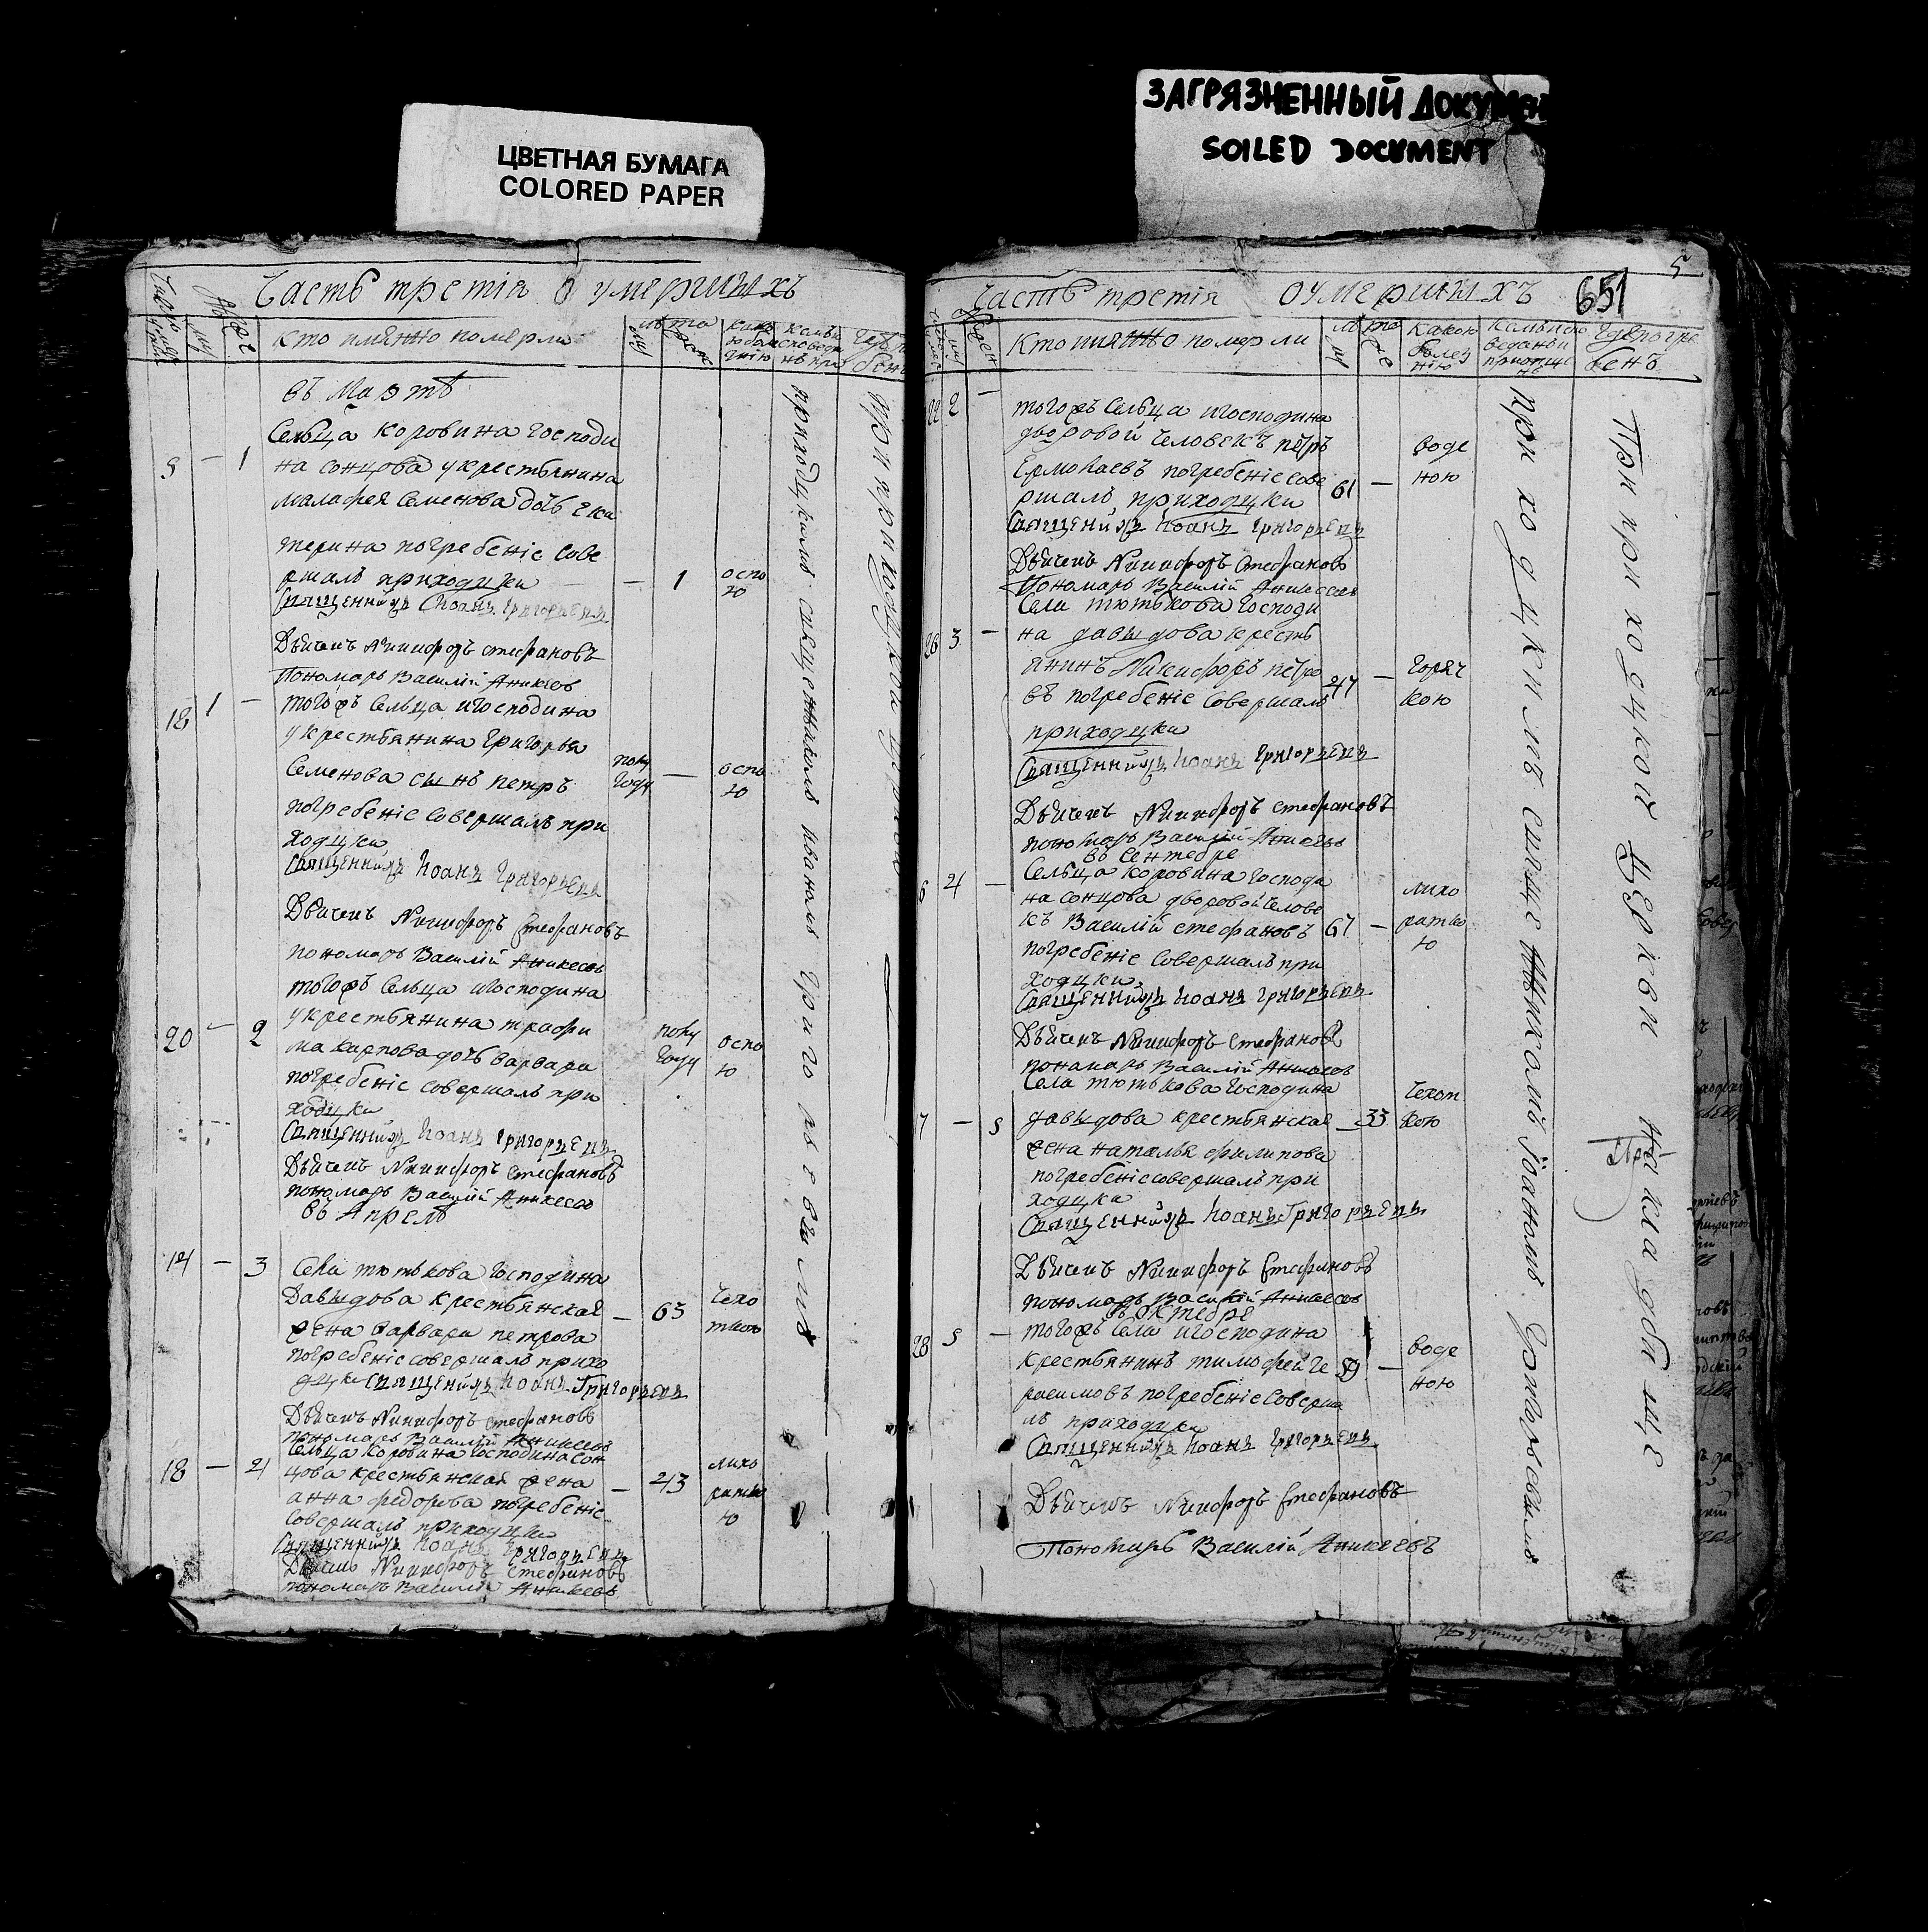 ЦВЕТНАЯ БУМАГА
COLORED PAPER
ЗАГРЯЗНЕННЫЙ ДОКУМЕН
SOILED DOCUMENT
Часть третія о умершихъ
кто имянно померли
лѣта
въ Мартѣ
5 — 1
Сельца коровина господи
на сонцова у крестьянина
малафея Семенова дочь ека
терина погребеніе сове
ршалъ приходцки
— 1
оспо
ю
Священникъ Іоаннъ Григорьевъ
Дьячекъ Никифоръ стефановъ
Пономарь Василій Аникеев
18 1 —
тогожъ Сельца игосподина
у крестьянина Григорья
Семенова сынъ петръ
полу
году
—
оспо
ю
погребеніе Совершалъ при
ходцки
Священникъ Іоаннъ Григорьевъ
Дьячекъ Никифоръ Стефановъ
пономарь Василій Аникеевъ
тогожъ Сельца игосподина
20 — 2
у крестьянина трофи
ма карпова дочь варвара
полу
году
оспо
ю
погребеніе совершалъ при
ходцки
Священникъ Іоаннъ Григорьевъ
Дьячекъ Никифоръ стефановъ
пономарь Василій Аникеевъ
въ Апрелѣ
14 — 3
Села тютькова господина
Давыдова крестьянская
жена варвара петрова
— 63
чехо
ткою
погребеніе совершалъ прихо
дцки Священникъ Іоаннъ Григорьевъ
Дьячекъ Никифоръ стефановъ
пономарь Василій Аникеевъ
Сельца коровина господина Сон
18 — 4
цова крестьянская жена
анна федорова погребеніе
— 43
лихо
ратко
ю
Совершалъ приходцки
Священникъ Іоаннъ Григорьевъ
Дьячекъ Никифоръ стефановъ
пономарь Василій Аникеевъ
приходцкимъ священникомъ иваномъ Григорьевымъ
при приходцкой церкви
5
651
Часть третія о умершихъ
Кто имянно померли
лѣта
какою
болез
нію
гдѣ погре
бенъ
22 2 —
тогожъ Сельца игосподина
дворовой человекъ петръ
Ермолаевъ погребеніе сове
ршалъ приходцки
61 —
воде
ною
Священникъ Іоаннъ Григорьевъ
Дьячекъ Никифоръ Стефановъ
Пономарь Василій Аникеевъ
Села тютькова господи
26 3 —
на давыдова кресть
янинъ Никифоръ петро
въ погребеніе Совершалъ
47 —
горяч
кою
приходцки
Священникъ Іоаннъ Григорьевъ
Дьячекъ Никифоръ стефановъ
пономарь Василій Аникеевъ
въ Сентебре
Сельца коровина господи
6 4 —
на сонцова дворовой челове
къ Василій стефановъ
67 —
лихо
ратко
ю
погребеніе Совершалъ при
ходцки
Священникъ Іоаннъ Григорьевъ
Дьячекъ Никифоръ Стефановъ
пономарь Василій Аникеевъ
Села тютькова господина
7 — 5
давыдова крестьянская
жена наталья филипова
— 33
чехот
кою
погребеніе совершалъ при
ходцки
Священникъ Іоаннъ Григорьевъ
Дьячекъ Никифоръ Стефановъ
пономарь Василій Аникеевъ
въ октебре
28 5 —
тогожъ Села игосподина
крестьянинъ тимофей ге
расимовъ погребеніе Соверша
лъ приходцки
59 —
воде
ною
Священникъ Іоаннъ Григорьевъ
Дьячекъ Никифоръ Стефановъ
Пономарь Василій Аникеевъ
приходцкимъ свяще нникомъ Іоанномъ Григорьевымъ
При приходцкой церкви на кладбище